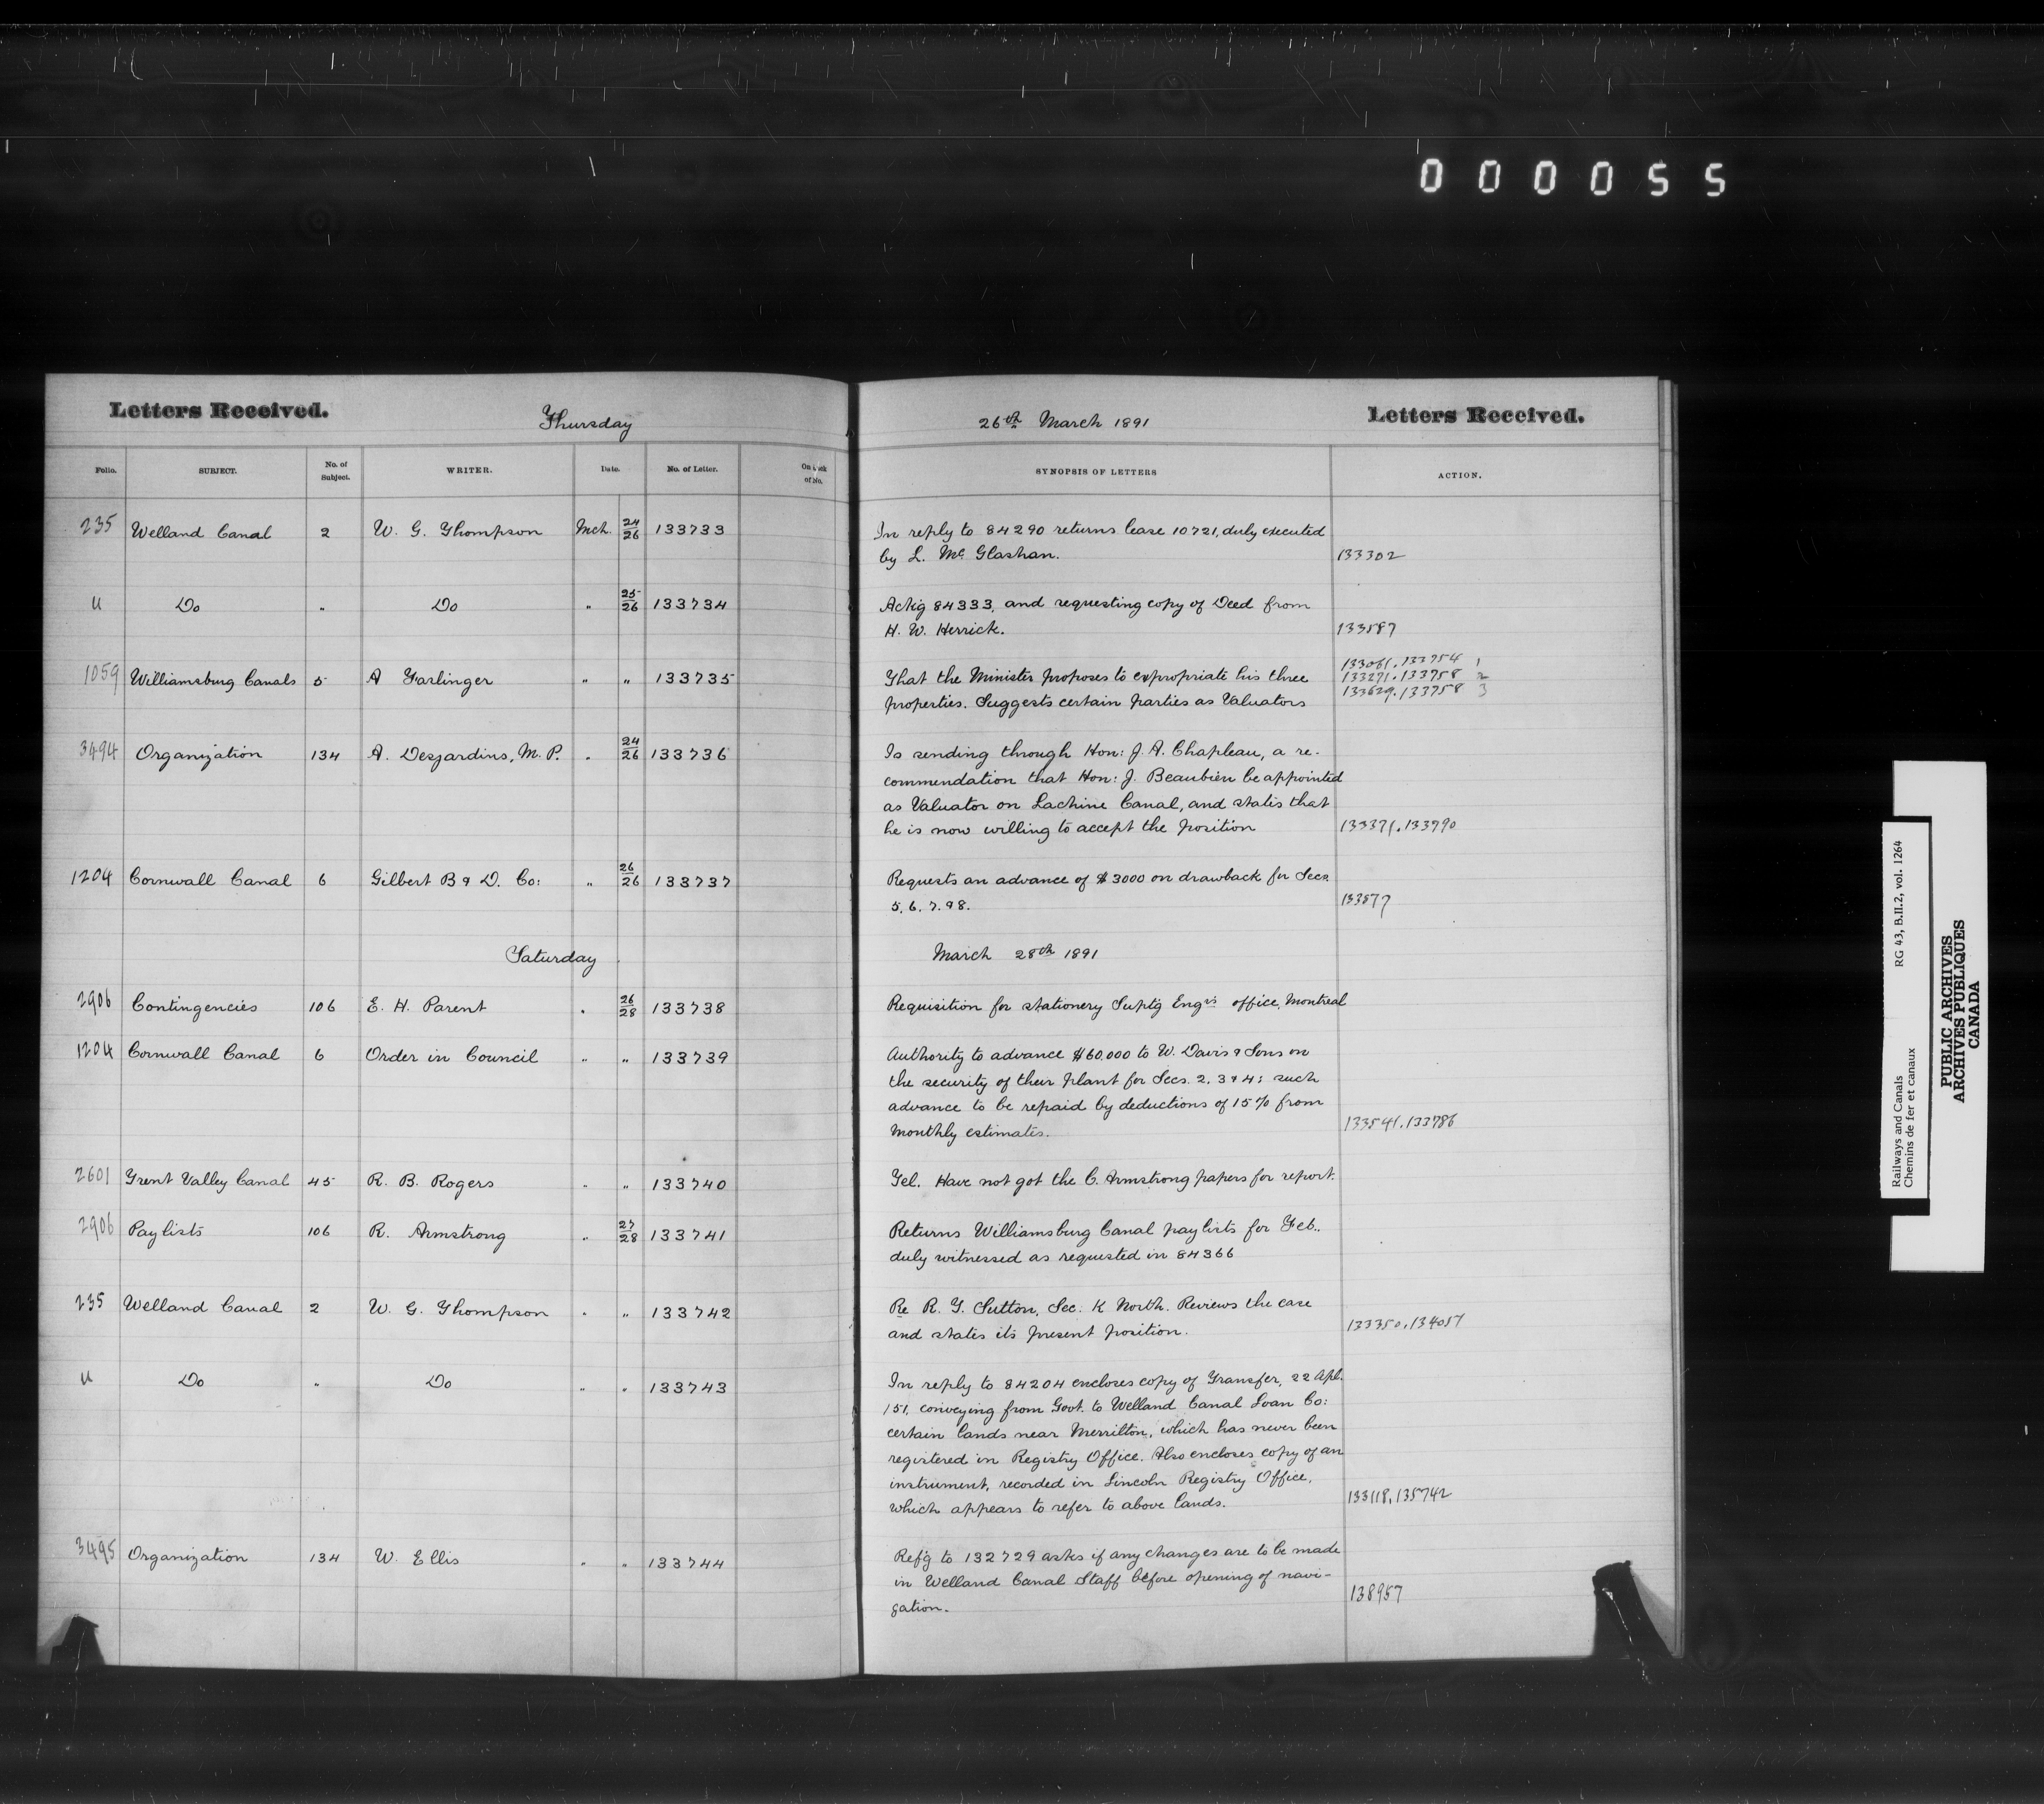 000055
Letters Received. Thursday 26th March 1891 Letters Received.
Folio. SUBJECT. No. of Subject. WRITER. Date. No. of Letter. On back of No. SYNOPSIS OF LETTERS ACTION.
235 Welland Canal 2 W. G. Thompson Mch. 24/26 133733 In reply to 84290 returns lease 10721, duly executed
by L. McGlashan. 133302
" Do " Do " 25/26 133734 Ackg 84333, and requesting copy of Deed from
H. W. Herrick. 133587
1059 Williamsburg Canals 5 A Farlinger " " 133735 That the Minister proposes to expropriate his three
properties. Suggests certain parties as Valuators
133061.133754 1
133271.133758 2
133629.133758 3
3494 Organization 134 A. Desjardins, M.P. " 24/26 133736 Is sending through Hon: J. A. Chapleau, a re-
commendation that Hon: J. Beaubien be appointed
as Valuator on Lachine Canal, and states that
he is now willing to accept the position 133371.133790
1204 Cornwall Canal 6 Gilbert B & D. Co: " 26/26 133737 Requests an advance of $3000 on drawback for Secs.
5. 6. 7. & 8. 133577
Saturday March 28th 1891
2906 Contingencies 106 E. H. Parent " 26/28 133738 Requisition for stationery Suptg Engrs office, Montreal
1204 Cornwall Canal 6 Order in Council " " 133739 Authority to advance $60,000 to W. Davis & Sons on
the security of their plant for Secs. 2, 3 & 4: such
advance to be repaid by deductions of 15% from
monthly estimates. 133541.133786
2601 Trent Valley Canal 45 R. B. Rogers " " 133740 Tel. Have not got the C. Armstrong papers for report.
2906 Paylists 106 R. Armstrong " 27/28 133741 Returns Williamsburg Canal paylists for Feb.,
duly witnessed as requested in 84366
235 Welland Canal 2 W. G. Thompson " " 133742 Re R. T. Sutton, Sec. K North. Reviews the case
and states its present position. 133350.134057
" Do " Do " " 133743 In reply to 84204 encloses copy of Transfer, 22 Apl.
'51, conveying from Govt. to Welland Canal Loan Co:
certain lands near Merritton, which has never been
registered in Registry Office. Also encloses copy of an
instrument, recorded in Lincoln Registry Office,
which appears to refer to above lands. 133118.135742
3495 Organization 134 W. Ellis " " 133744 Refg to 132729 asks if any changes are to be made
in Welland Canal Staff before opening of navi-
gation. 138957
Railways and Canals RG 43, B.II.2, vol. 1264
Chemins de fer et canaux
PUBLIC ARCHIVES
ARCHIVES PUBLIQUES
CANADA